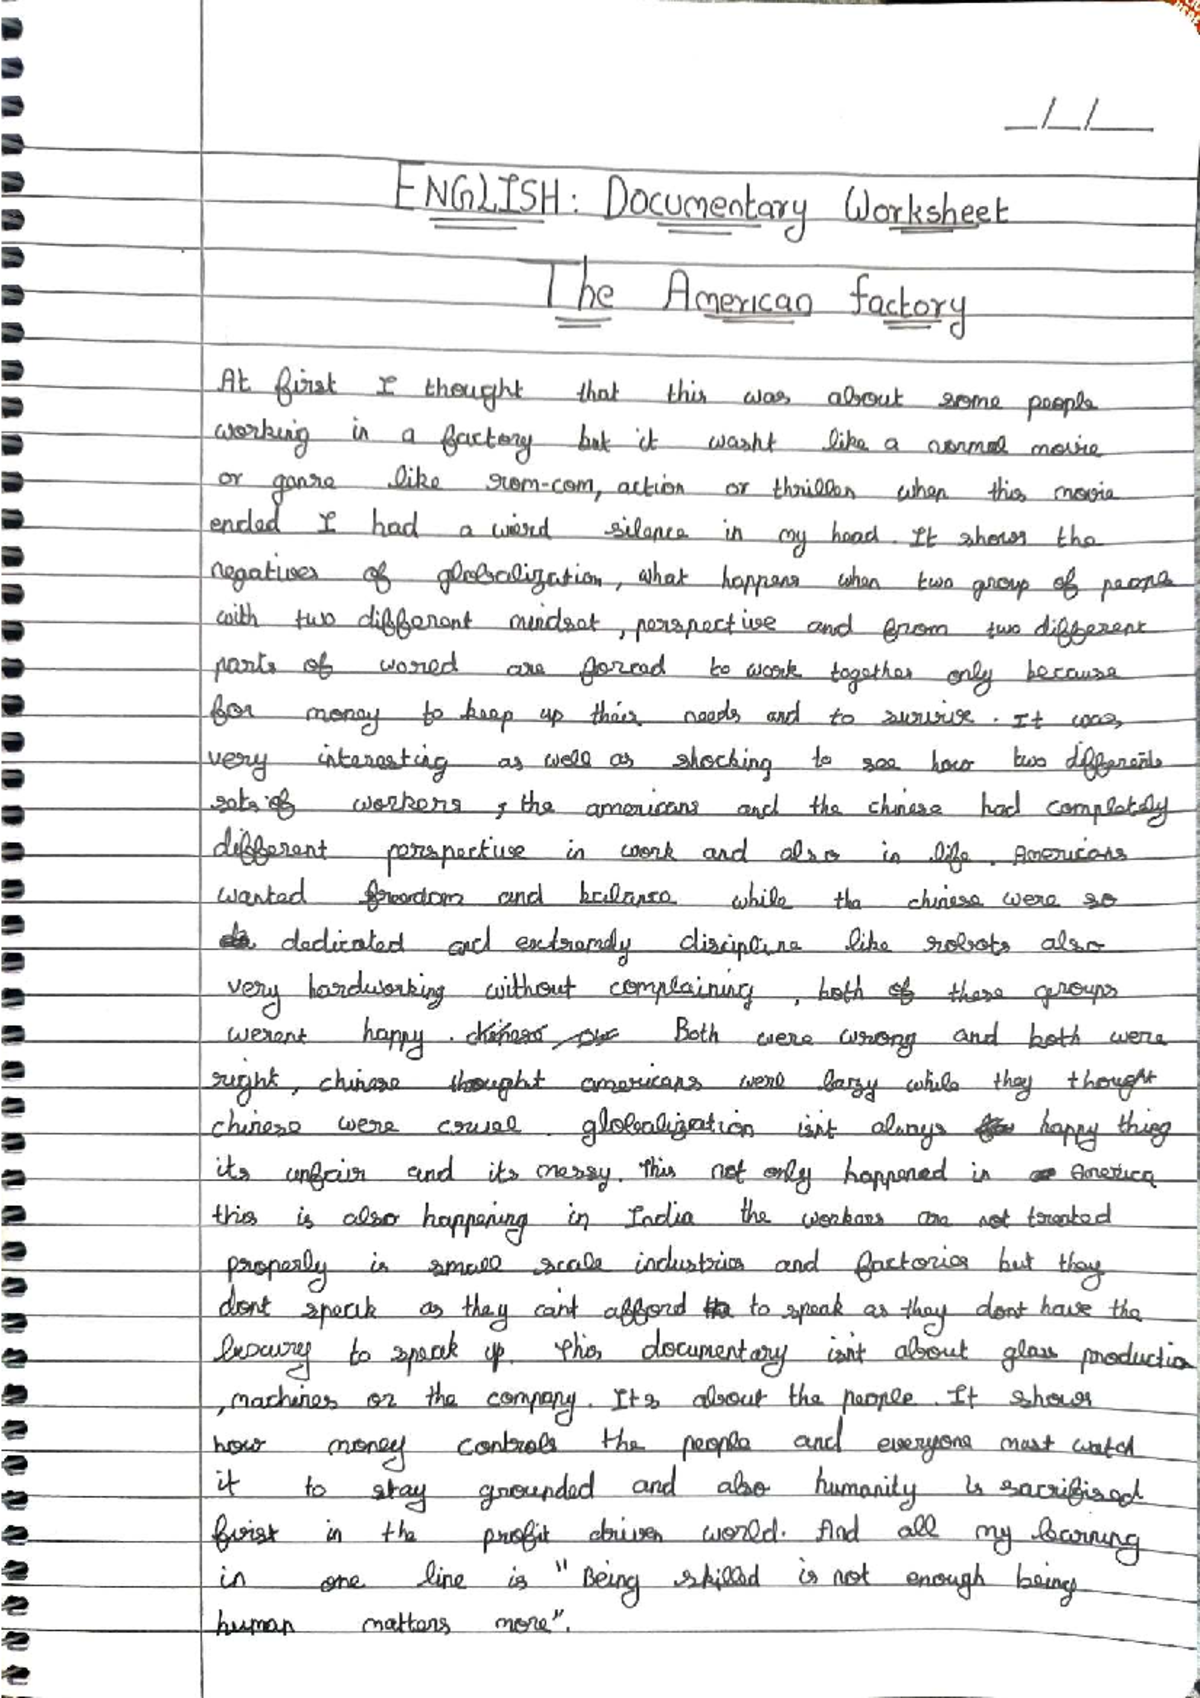 __/__/____
ENGLISH: Documentary Worksheet
The American factory
At first I thought that this was about some people
working in a factory but it wasnt like a normal movie
or ganre like rom-com, action or thriller when this movie
ended I had a wierd silence in my head. It shows the
negatives of globalization, what happens when two group of people
with two different mindset, perspective and from two different
parts of world are forced to work together only because
for money to keep up their needs and to survive. It was
very interesting as well as shocking to see how two different
sets of workers, the americans and the chinese had completely
different perspective in work and also in life. Americans
wanted freedom and balance while the chinese were so
dedicated and extremely discipline like robots also
very hardworking without complaining, both of these groups
werent happy. Both were wrong and both were
right, chinese thought americans were lazy while they thought
chinese were cruel. globalization isnt always happy thing
its unfair and its messy. This not only happened in America
this is also happening in India the workers are not treated
properly in small scale industries and factories but they
dont speak as they cant afford to speak as they dont have the
luxury to speak up. This documentary isnt about glass production
, machines or the company. Its about the people. It shows
how money controls the people and everyone must watch
it to stay grounded and also humanity is sacrifised
first in the profit driven world. And all my learning
in one line is "Being skilled is not enough being
human matters more".